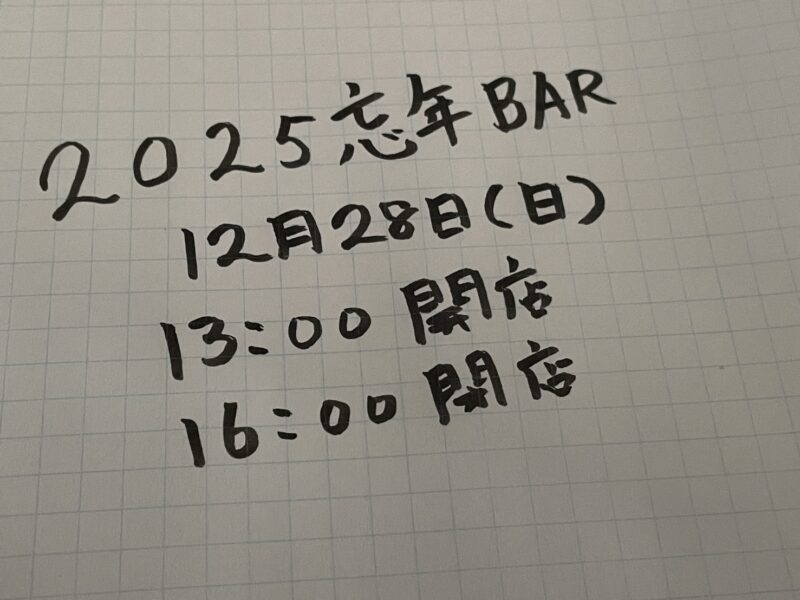 2025忘年BAR
12月28日(日)
13:00 開店
16:00 閉店